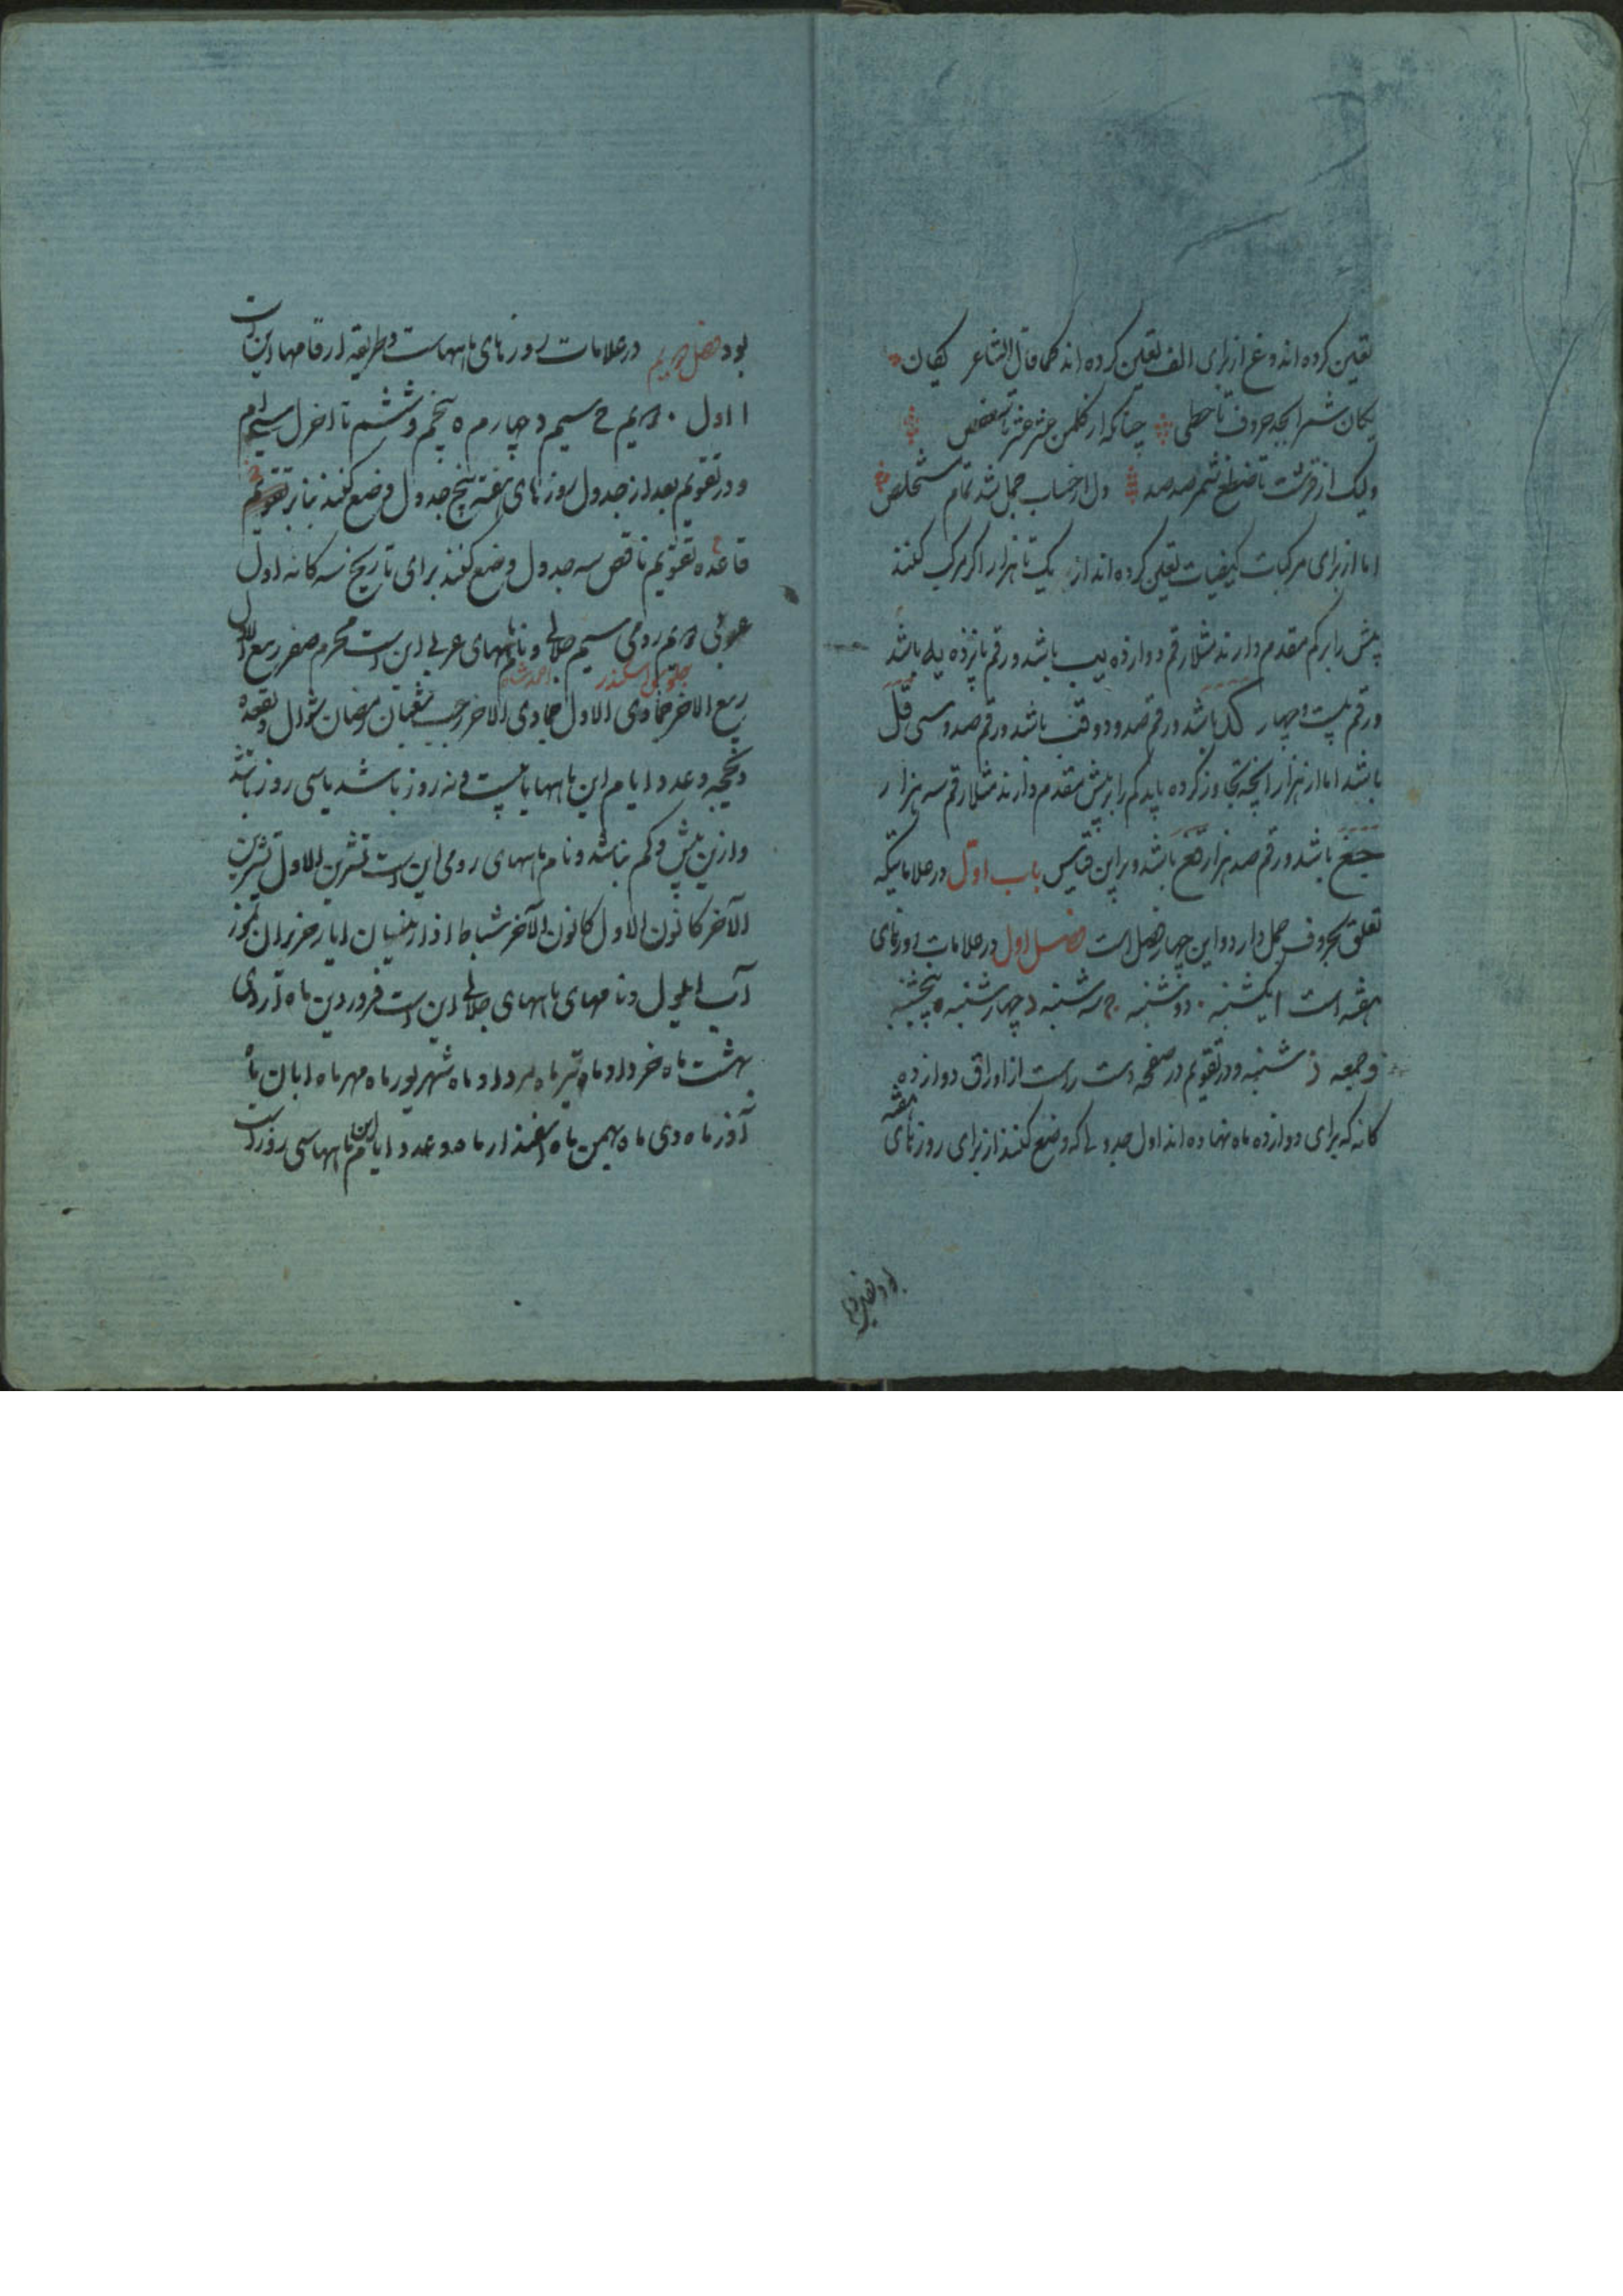 تعین کرده اند و غ از برای الف تعین کرده اند کما قال الشاعر یکان
یکان شمر ابجد حروف تا حطی چنانکه از کلمن عشر عشر تا سعفص
ولیک از قرشت تا ضظغ شمر صد صد دل از حساب جمل شد تمام مستخلص
اما از برای مرکبات کیفیات تعین کرده اند از یک تا هزار اگر مرکب کنند
بیش را بر کم مقدم دارند مثلا رقم دوازده یب باشد و رقم پانزده یه باشد
و رقم بیست و چهار کد باشد و رقم صد و دو قب باشد و رقم صد و سی قل
باشد اما از هزار آنچه تجاوز کرده باید کم را بر بیش مقدم دارند مثلا رقم سه هزار
جغ باشد و رقم صد هزار قغ باشد و براین قیاس باب اول در علاماتیکه
تعلق بحروف جمل دارد و این چهار فصل است فصل اول در علامات روزهای
هفته است ا یکشنبه ٠ دوشنبه ج سه شنبه د چهارشنبه ه پنجشنبه
و جمعه ز شنبه و در تقویم در صفحه دست راست از اوراق دوازده
کانه که برای دوازده ماه نهاده اند اول جدولی که وضع کنند از برای روزهای
هفته
بود فصل دویم
بود فصل دویم در علامات روزهای ماههاست و طریقه ارقامها این است
ا اول ٠ دویم ج سیم د چهارم ه پنجم و ششم تا آخر ل سی ام
و در تقویم بعد از جدول روزهای هفته پنج جدول وضع کنند بنا بر تقویم
قاعده تقویم ناقص سه جدول وضع کنند برای تاریخ سه کانه اول
عربی دویم رومی سیم جلالی و نام ماههای عربی این است محرم صفر ربیع الاول
جلوس اسکندر احمدشاه
ربیع الاخر جمادی الاول جمادی الاخر رجب شعبان رمضان شوال ذیقعده
ذیحجه و عدد ایام این ماهها یا بیست و نه روز باشد یا سی روز باشد
و ازین بیش و کم نباشد و نام ماههای رومی این است تشرین الاول تشرین
الآخر کانون الاول کانون الآخر شباط اذار نیسان ایار حزیران تموز
آب ایلول و نامهای ماههای جلالی این است فروردین ماه اردی
بهشت ماه خرداد ماه تیر ماه مرداد ماه شهریور ماه مهر ماه ابان ماه
آذر ماه دی ماه بهمن ماه اسفندار ماه و عدد ایام این ماهها سی روز است